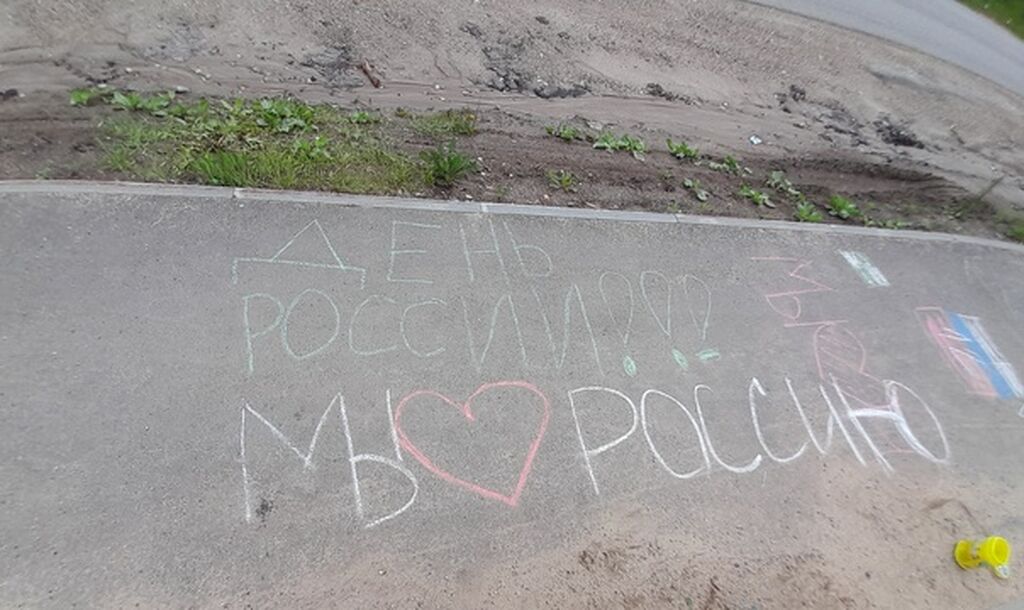 ДЕНЬ
РОССИИ!!!
МЫ РОССИЮ